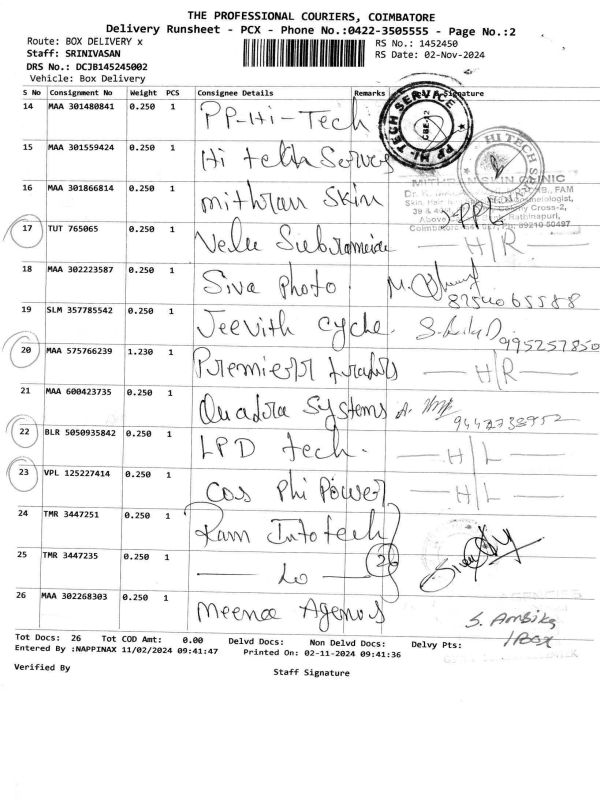 THE PROFESSIONAL COURIERS, COIMBATORE
Delivery Runsheet - PCX - Phone No.:0422-3505555 - Page No.:2
Route: BOX DELIVERY x RS No.: 1452450
Staff: SRINIVASAN RS Date: 02-Nov-2024
DRS No.: DCJB145245002
Vehicle: Box Delivery
S No Consignment No Weight PCS Consignee Details Remarks Signature
14 MAA 301480841 0.250 1 PP-Hi-Tech
PP HI-TECH SERVICE CBE-12
15 MAA 301559424 0.250 1 Hi
HI TECH
16 MAA 301866814 0.250 1 mithran Skin
SKIN CLINIC
17 TUT 765065 0.250 1 Velu H/R
18 MAA 302223587 0.250 1 Siva photo
19 SLM 357785542 0.250 1 Jeevith cycle. 995257850
20 MAA 575766239 1.230 1 Premier traders H/R
21 MAA 600423735 0.250 1 Quadra Systems
22 BLR 5050935842 0.250 1 LPD tech. H/L
23 VPL 125227414 0.250 1 Cos Phi Power H/L
24 TMR 3447251 0.250 1 Ram Infotech
25 TMR 3447235 0.250 1 — Do — 26
26 MAA 302268303 0.250 1 Meenaa S. Ambika
1 Box
Tot Docs: 26 Tot COD Amt: 0.00 Delvd Docs: Non Delvd Docs: Delvy Pts:
Entered By :NAPPINAX 11/02/2024 09:41:47 Printed On: 02-11-2024 09:41:36
Verified By Staff Signature